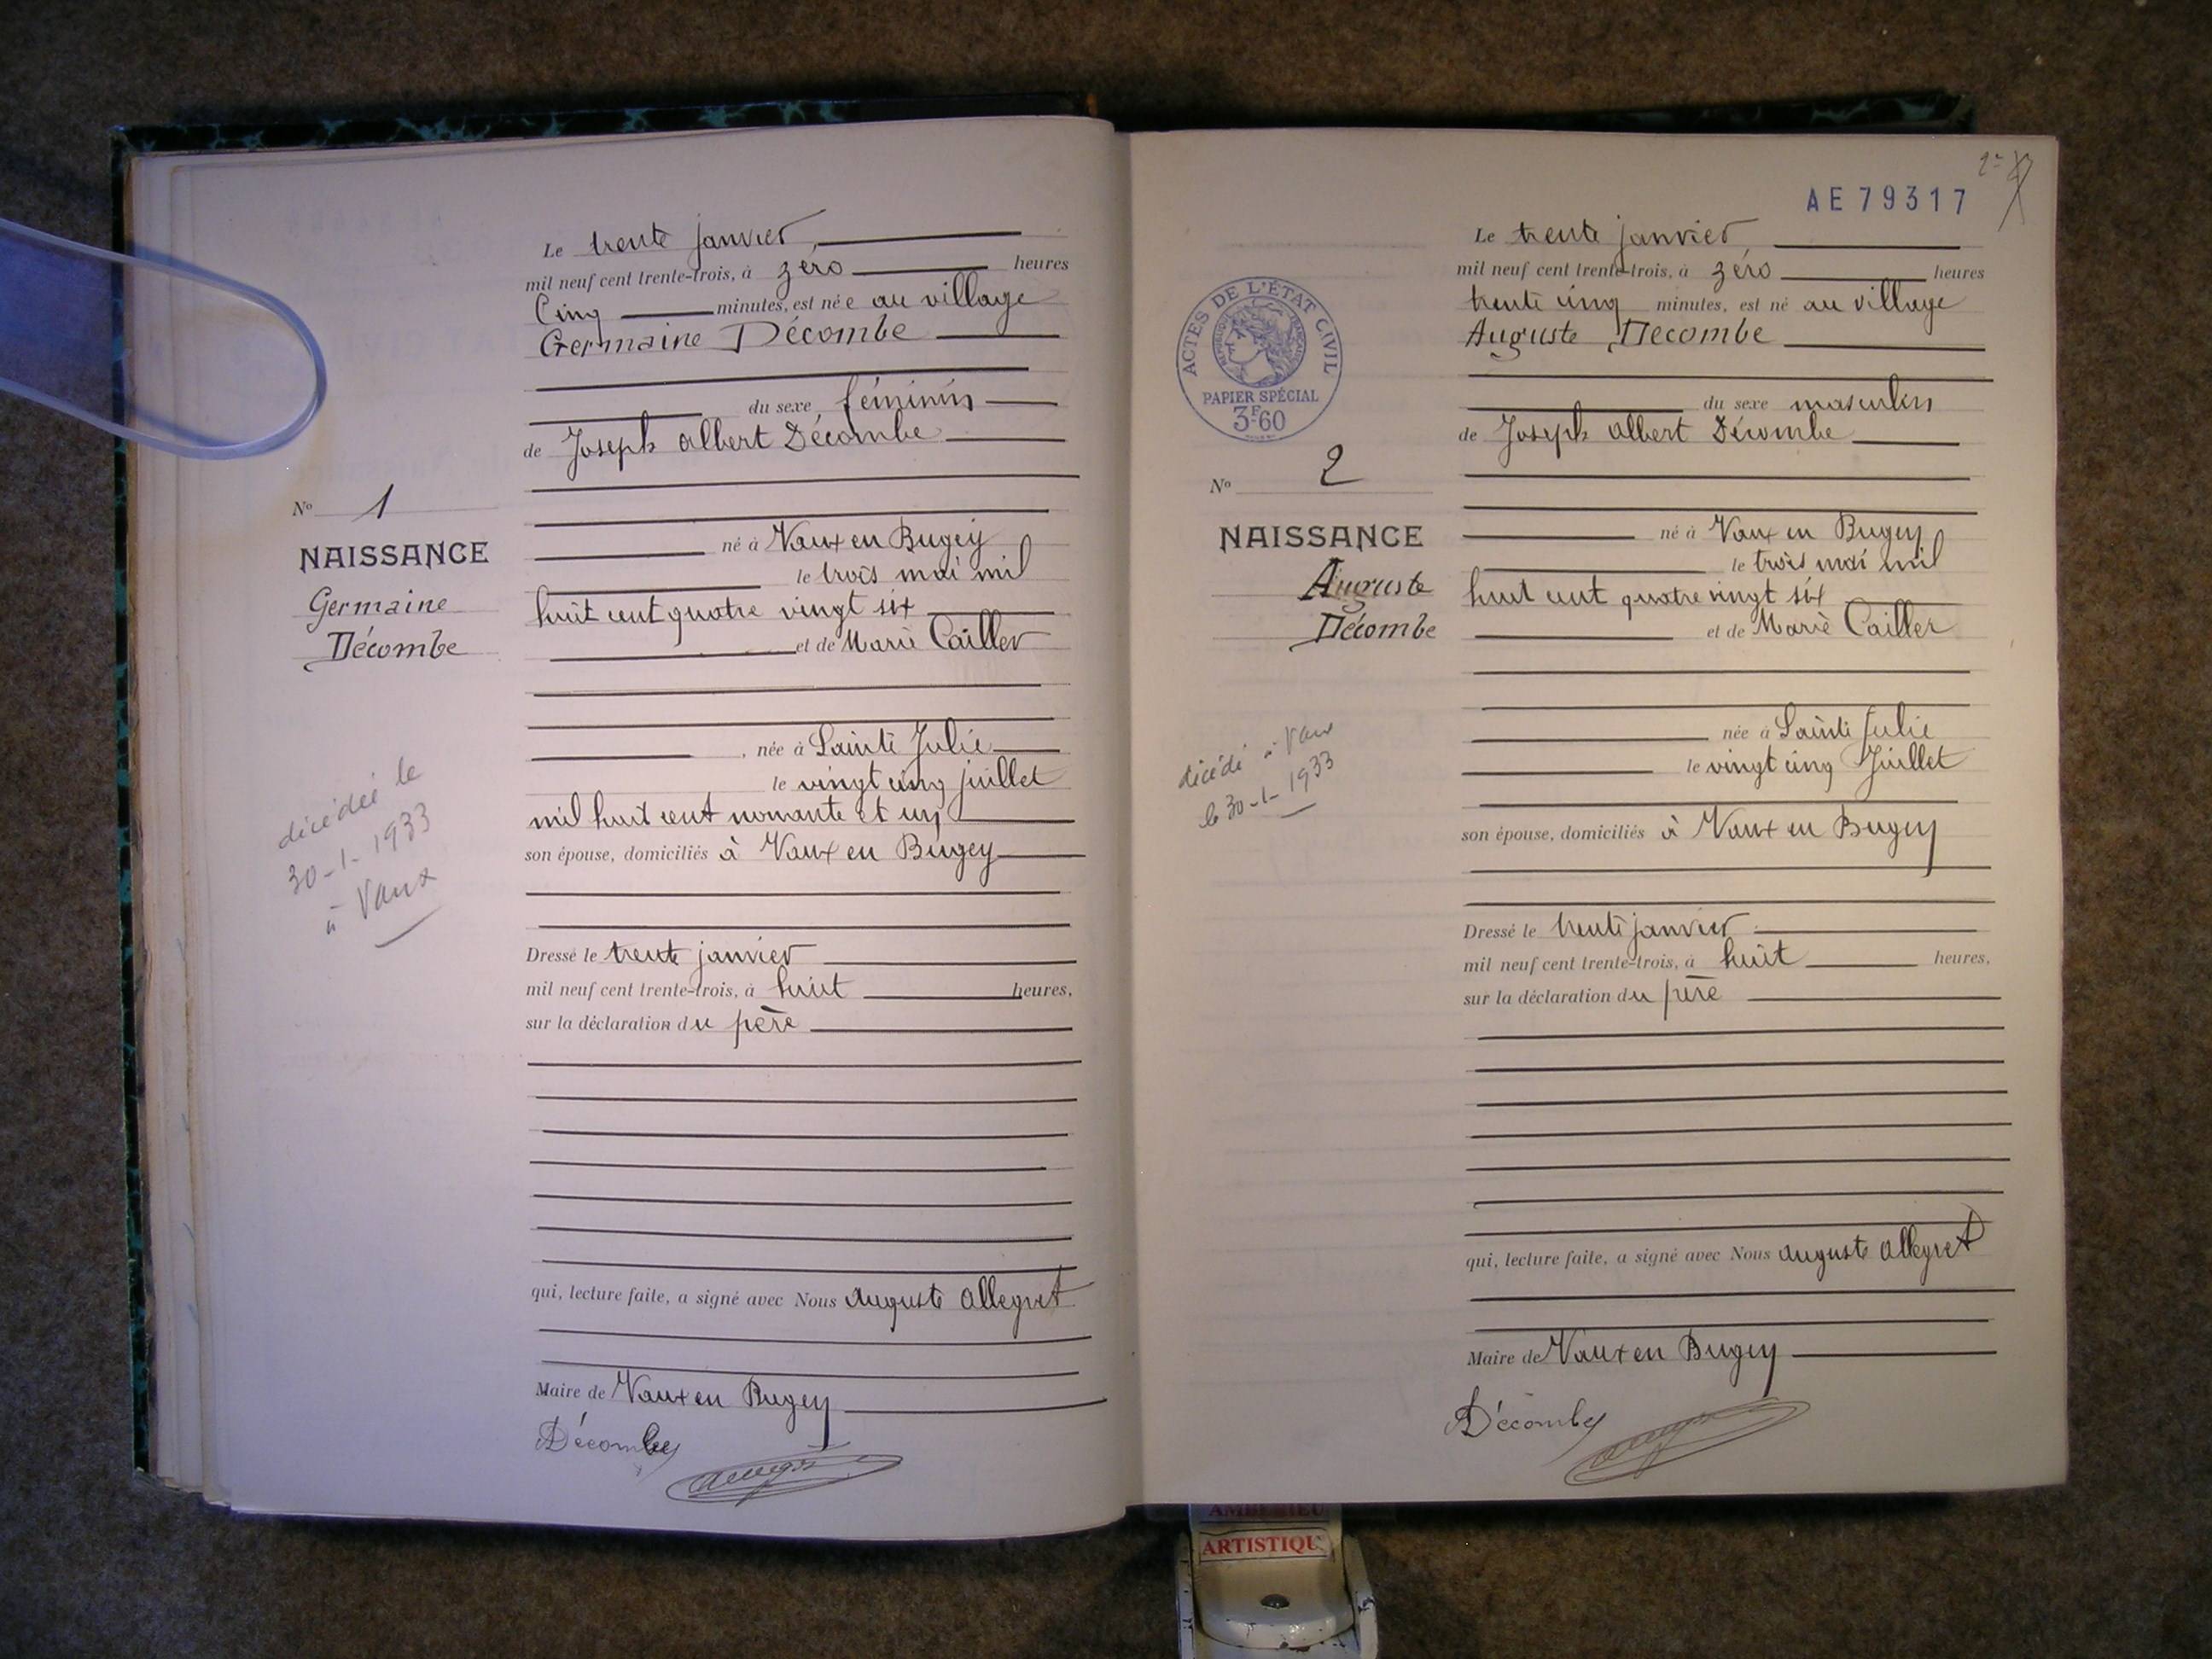 Le trente janvier,
mil neuf cent trente-trois, à zéro heures
Cinq minutes, est née au village
Germaine Décombe
du sexe féminin
de Joseph Albert Décombe
né à Vaux en Bugey
le trois mai mil
huit cent quatre vingt six
et de Marie Cailler
, née à Sainte Julie
le vingt cinq juillet
mil huit cent nonante et un
son épouse, domiciliés à Vaux en Bugey
Dressé le trente janvier
mil neuf cent trente-trois, à huit heures,
sur la déclaration du père
qui, lecture faite, a signé avec Nous Auguste Allegret
Maire de Vaux en Bugey
Décombe
No 1
NAISSANCE
Germaine
Décombe
décédée le
30-1-1933
à Vaux
AE79317
Le trente janvier,
mil neuf cent trente-trois, à zéro heures
trente cinq minutes, est né au village
Auguste Décombe
du sexe masculin
de Joseph Albert Décombe
né à Vaux en Bugey
le trois mai mil
huit cent quatre vingt six
et de Marie Cailler
née à Sainte Julie
le vingt cinq Juillet
son épouse, domiciliés à Vaux en Bugey
Dressé le trente janvier
mil neuf cent trente-trois, à huit heures,
sur la déclaration du père
qui, lecture faite, a signé avec Nous Auguste Allegret
Maire de Vaux en Bugey
Décombe
ACTES DE L'ÉTAT CIVIL
RÉPUBLIQUE FRANÇAISE
PAPIER SPÉCIAL
3F60
No 2
NAISSANCE
Auguste
Décombe
décédé à Vaux
le 30-1-1933
AMBERIEU
ARTISTIQU